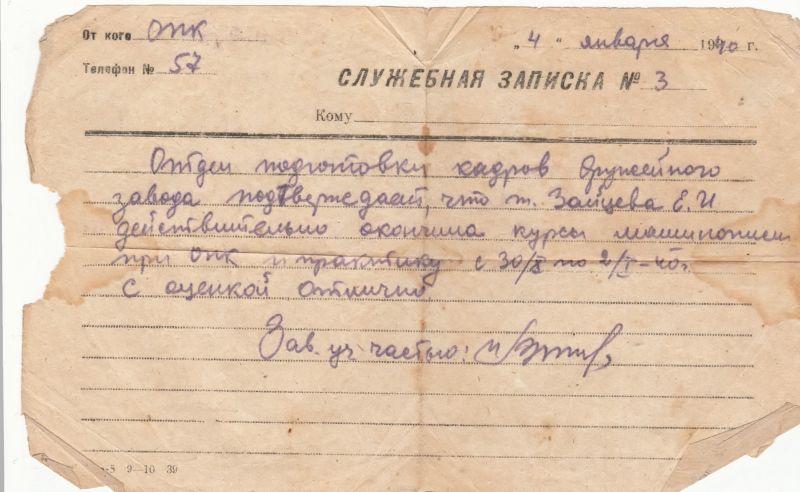 От кого ОПК
„4“ января 1940 г.
Телефон № 57
СЛУЖЕБНАЯ ЗАПИСКА № 3
Кому
Отдел подготовки кадров Оружейного
завода подтверждает, что т. Зайцева Е.И
действительно окончила курсы машинописи
при ОПК и практику с 30/X по 2/I-40г.
с оценкой отлично
Зав. уч. частью:
9—10 39